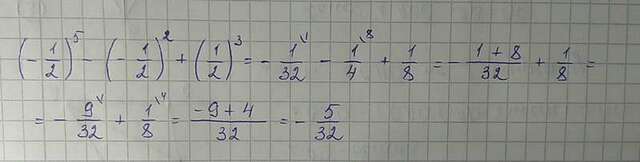 (-1/2)^5 - (-1/2)^2 + (1/2)^3 = - 1\1/32 - 1\8/4 + 1/8 = - 1+8/32 + 1/8 =
= - 9\1/32 + 1\4/8 = -9+4/32 = - 5/32